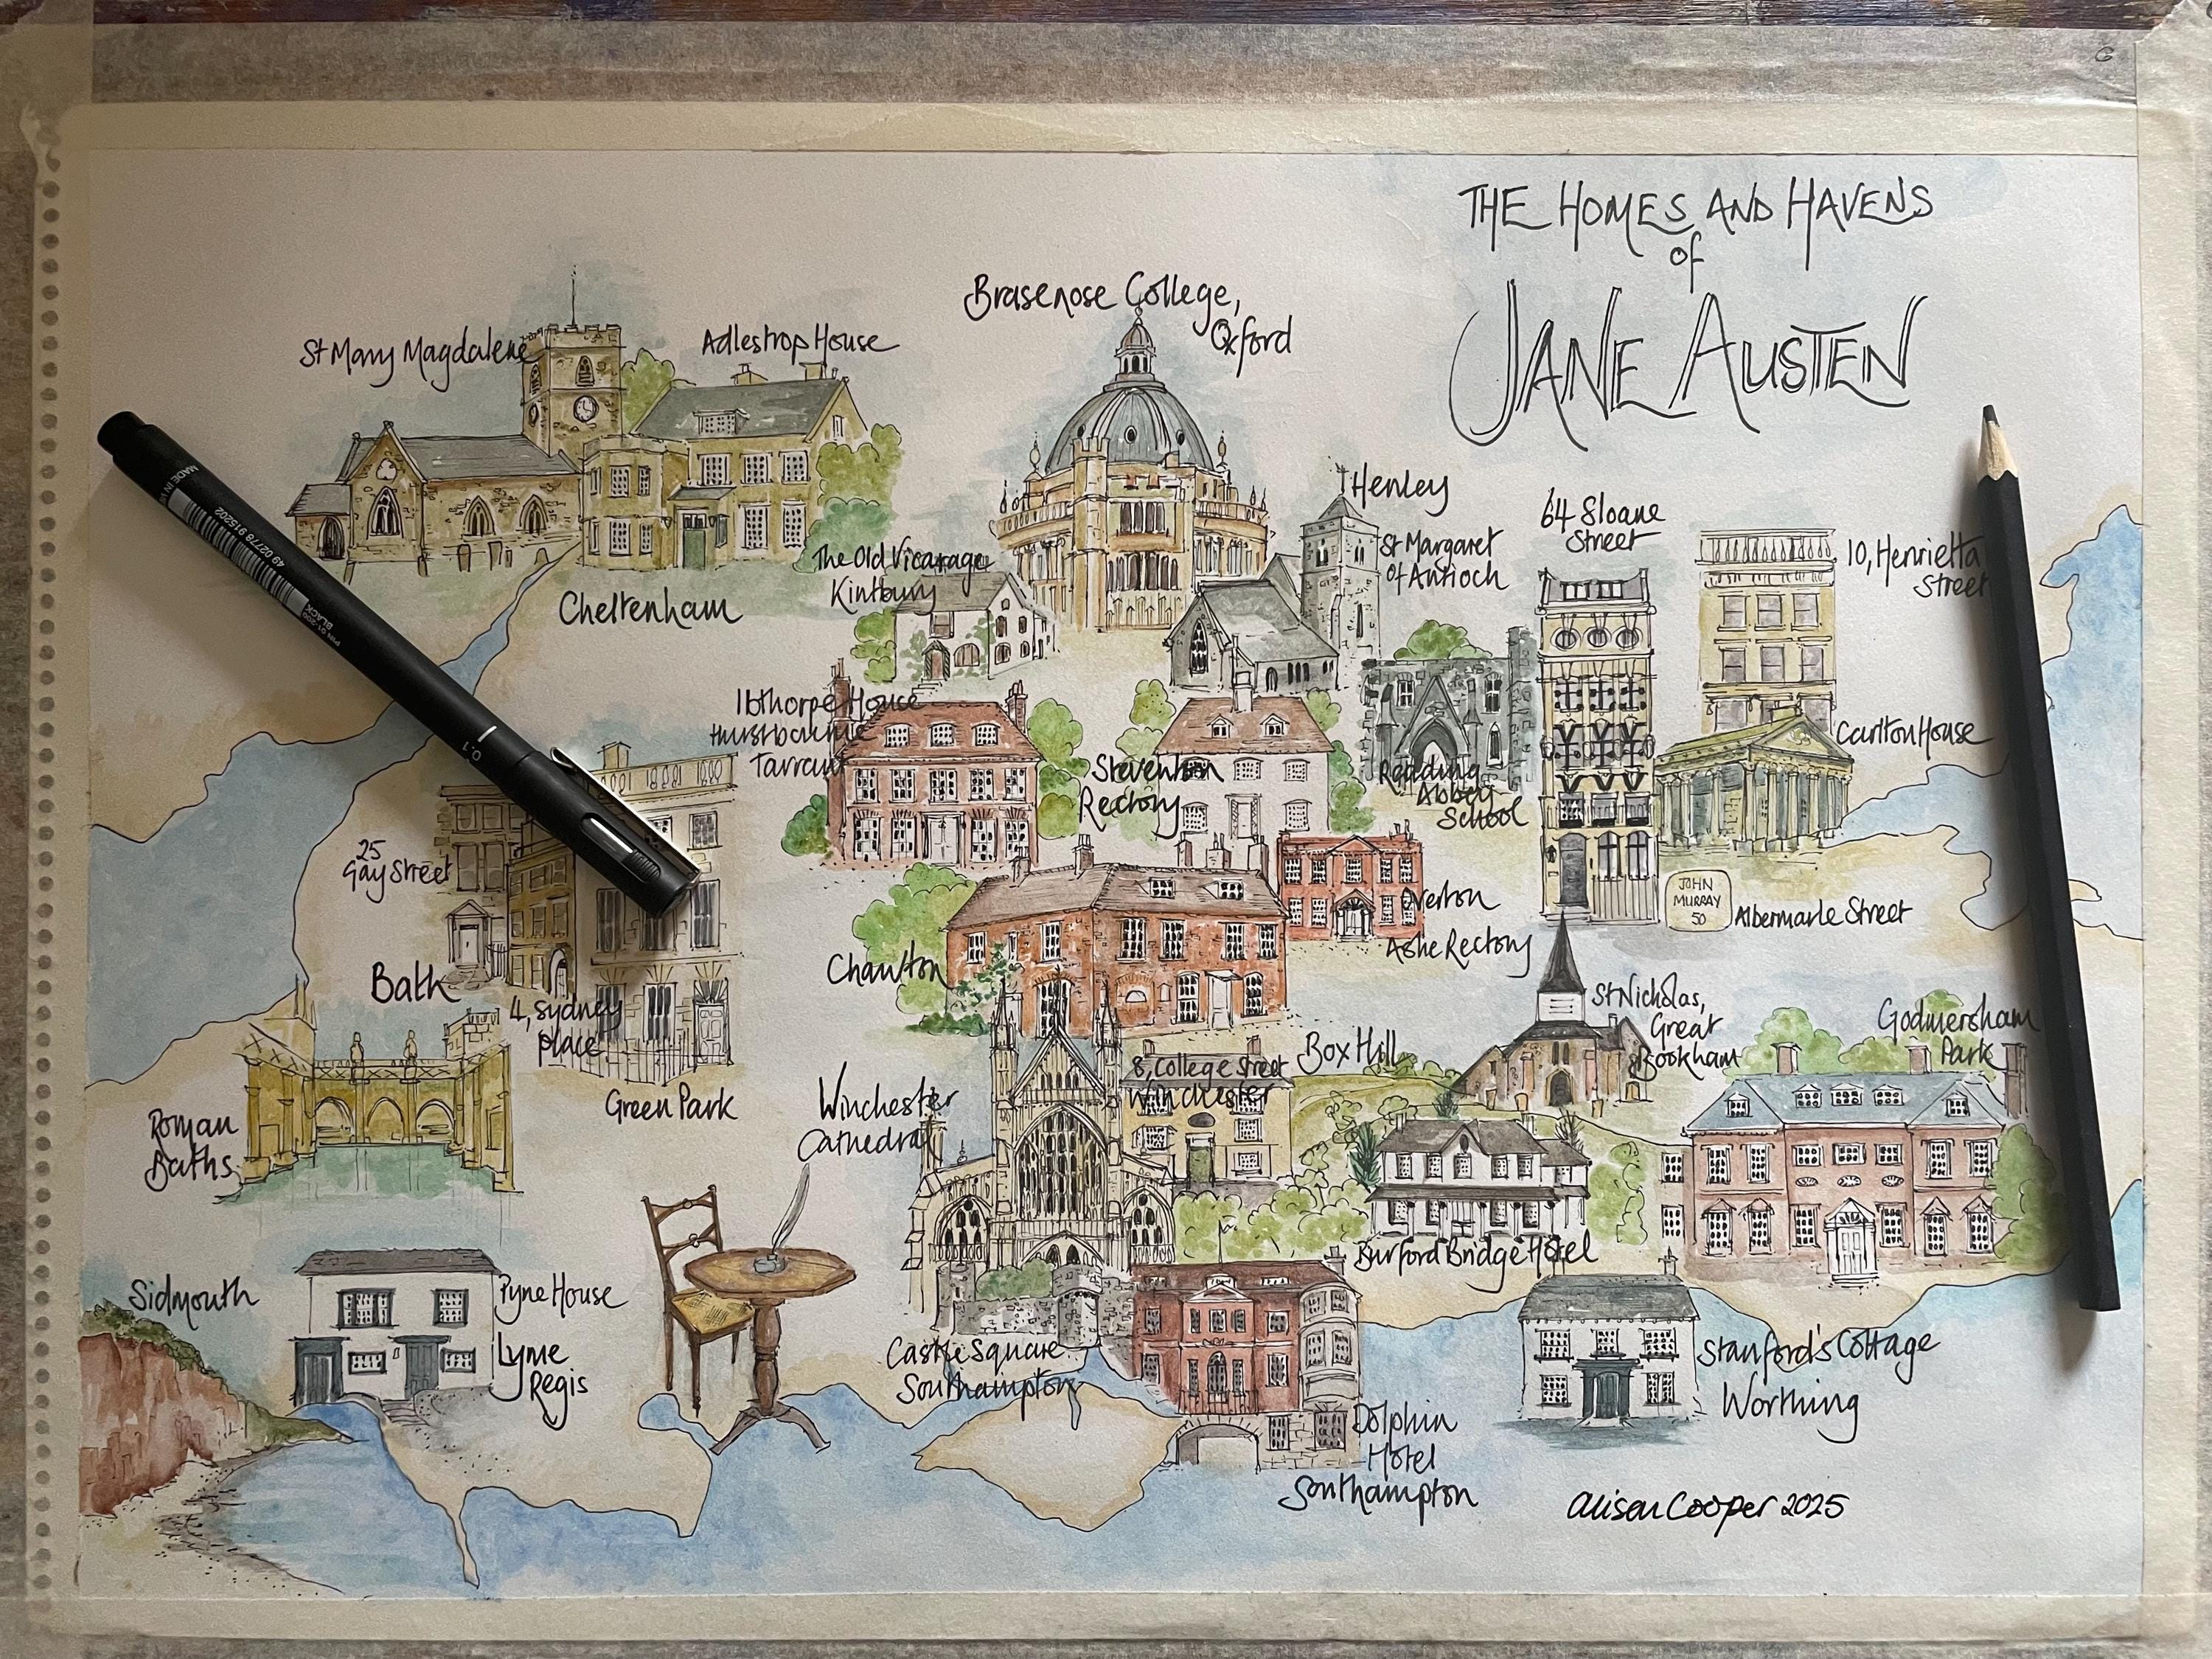 THE HOMES AND HAVENS
of
JANE AUSTEN
Brasenose College,
Oxford
St Mary Magdalene
Adlestrop House
Cheltenham
The Old Vicarage
Kintbury
Henley
St Margaret
of Antioch
64 Sloane
Street
10, Henrietta
Street
Carlton House
Ibthorpe House
Hurstbourne
Tarrant
Steventon
Rectory
Reading
Abbey
School
JOHN
MURRAY
50
Albermarle Street
25
Gay Street
Bath
4, Sydney
place
Green Park
Roman
Baths
Chawton
Overton
Ashe Rectory
St Nicholas,
Great
Bookham
Godmersham
Park
Winchester
Cathedral
8, College Street
Winchester
Box Hill
Burford Bridge Hotel
Sidmouth
Pyne House
Lyme
Regis
Castle Square
Southampton
Dolphin
Hotel
Southampton
Stanford's Cottage
Worthing
Alison Cooper 2025
MADE IN
49 02778 915202
BLACK
0.1